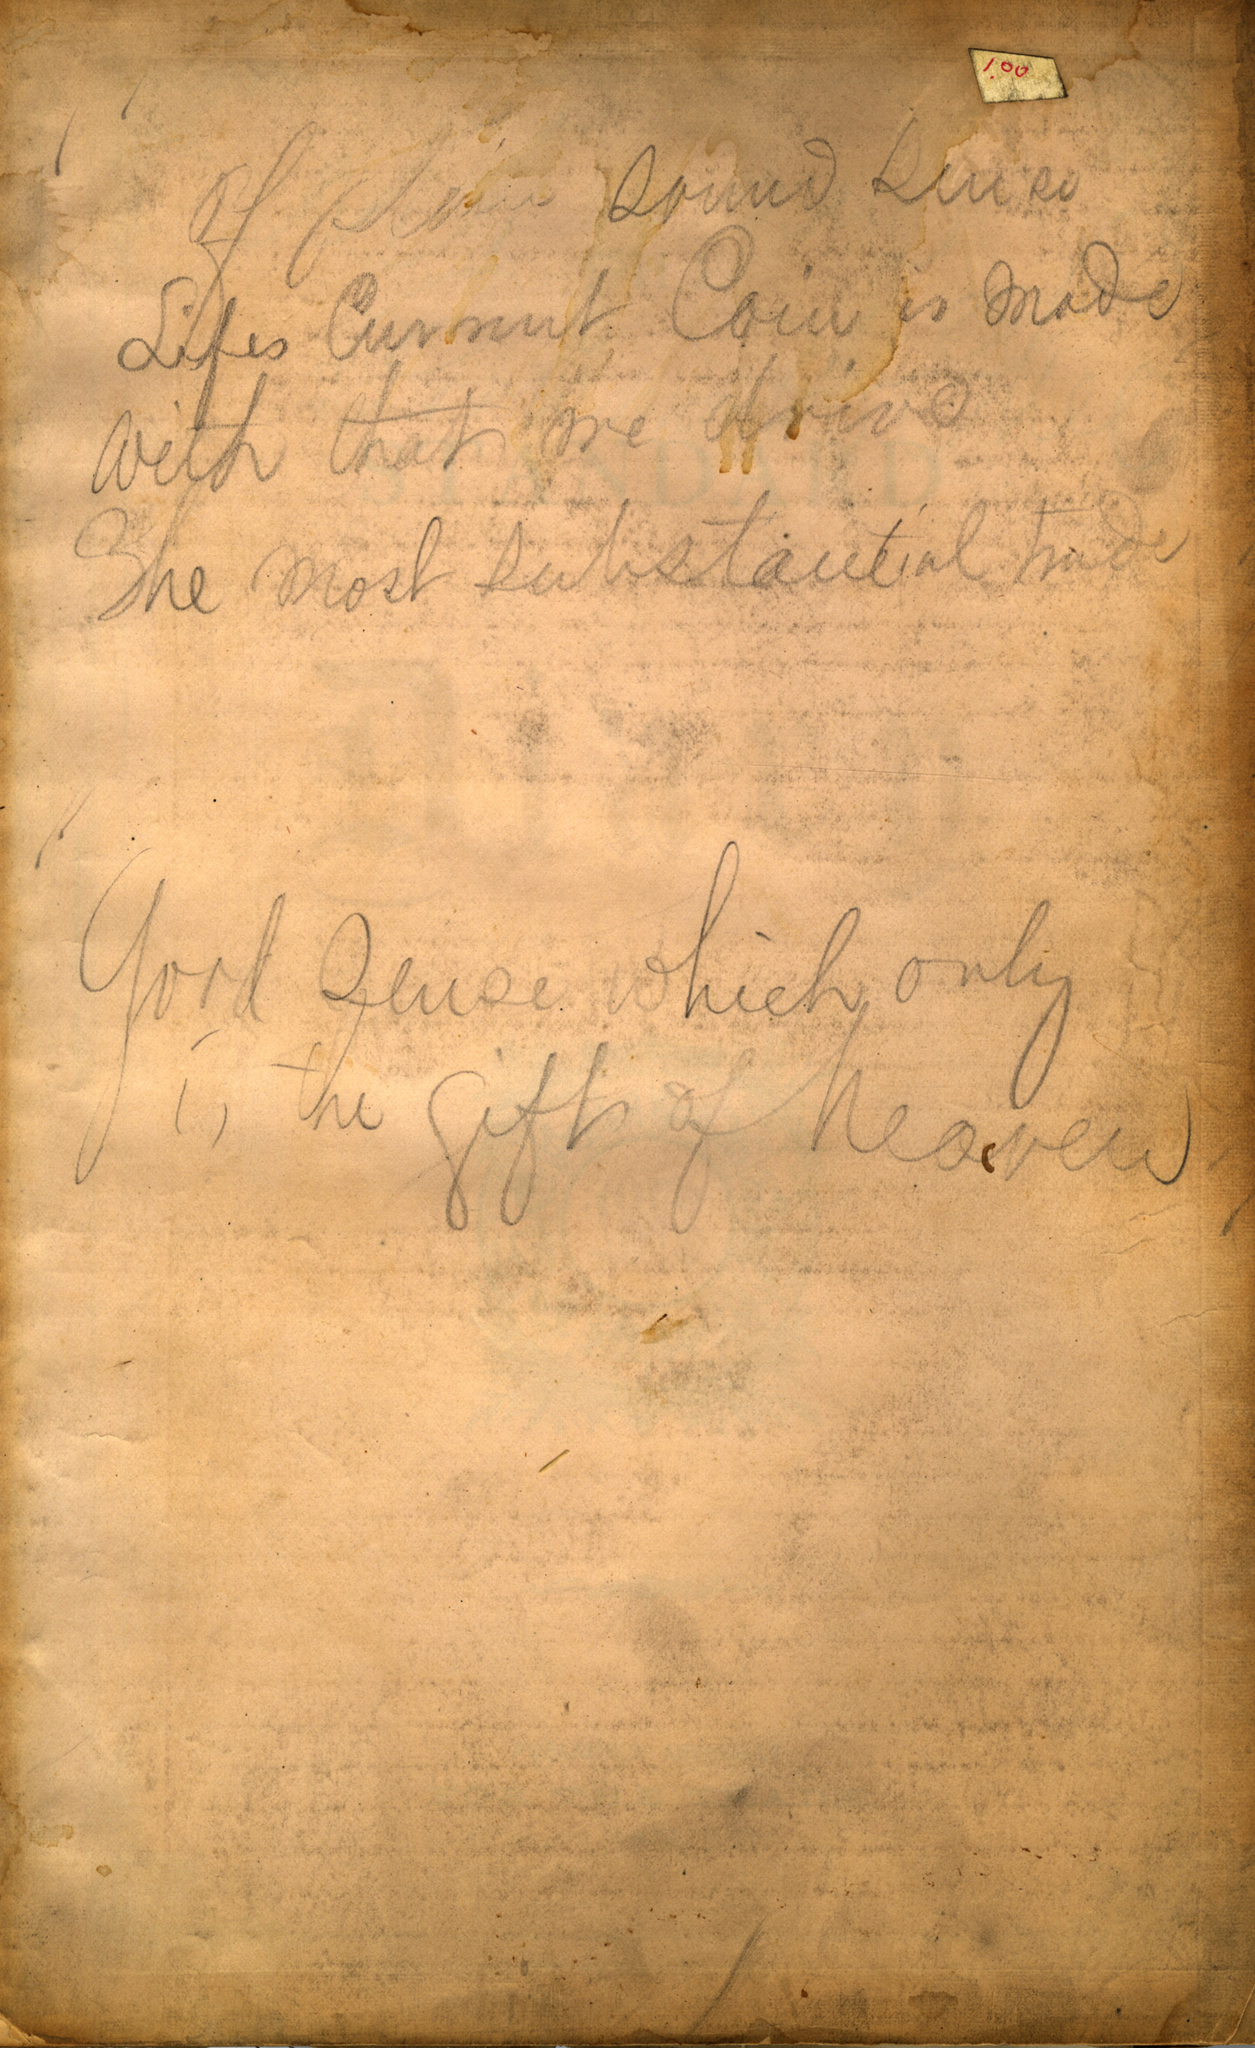 1.00
Of plain sound sense
Lifes Current Coin is made
With that we drive
The most substantial trade
Good sense which only
is the gift of heaven